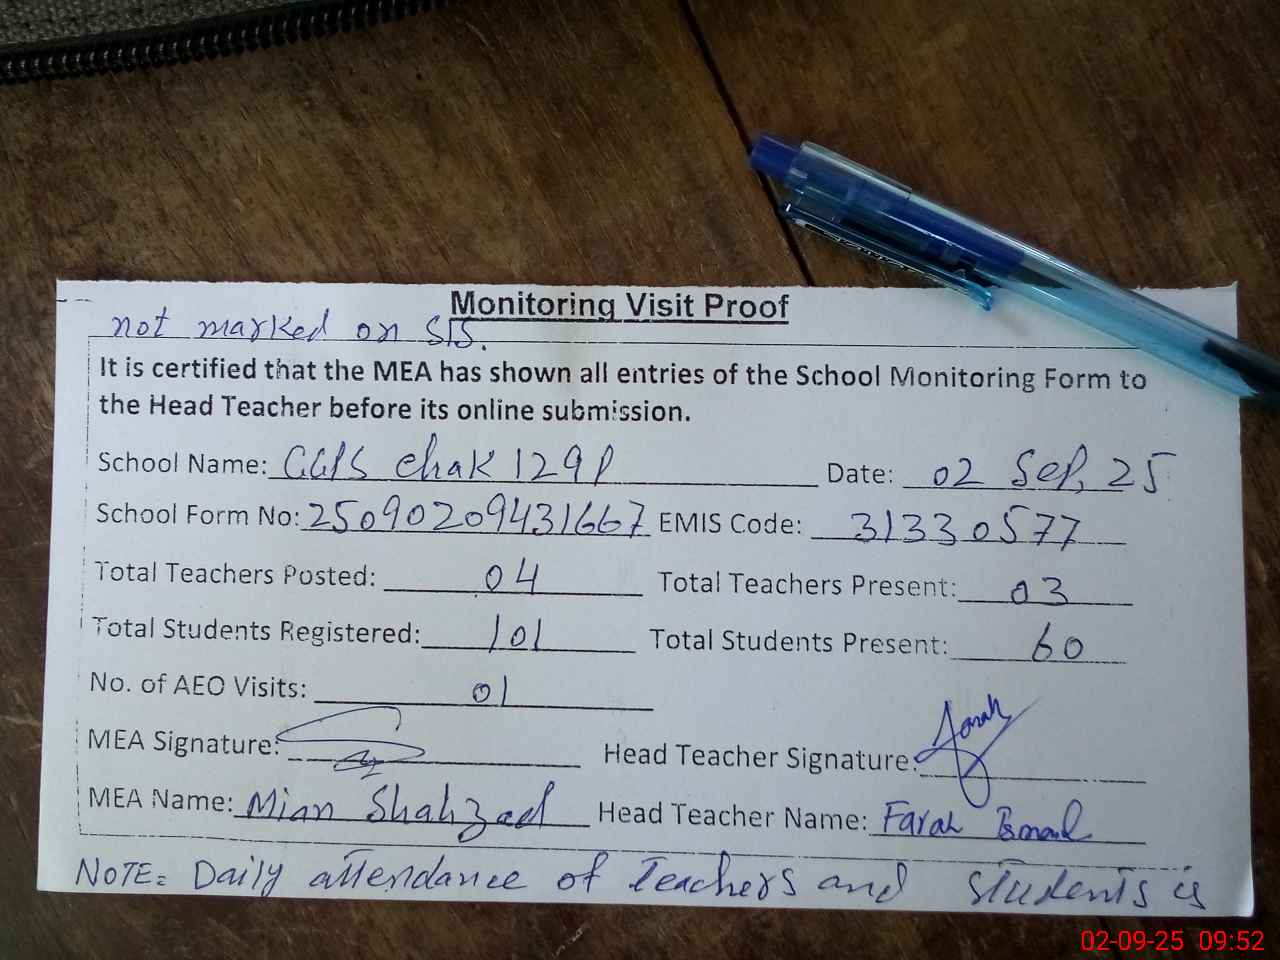 Monitoring Visit Proof
not marked on SIS.
It is certified that the MEA has shown all entries of the School Monitoring Form to
the Head Teacher before its online submission.
School Name: GGPS Chak 129P Date: 02 Sep, 25
School Form No: 25090209431667 EMIS Code: 31330577
Total Teachers Posted: 04 Total Teachers Present: 03
Total Students Registered: 101 Total Students Present: 60
No. of AEO Visits: 01
MEA Signature: Head Teacher Signature: Farah
MEA Name: Mian Shahzad Head Teacher Name: Farah
NOTE: Daily attendance of Teachers and students is
02-09-25 09:52